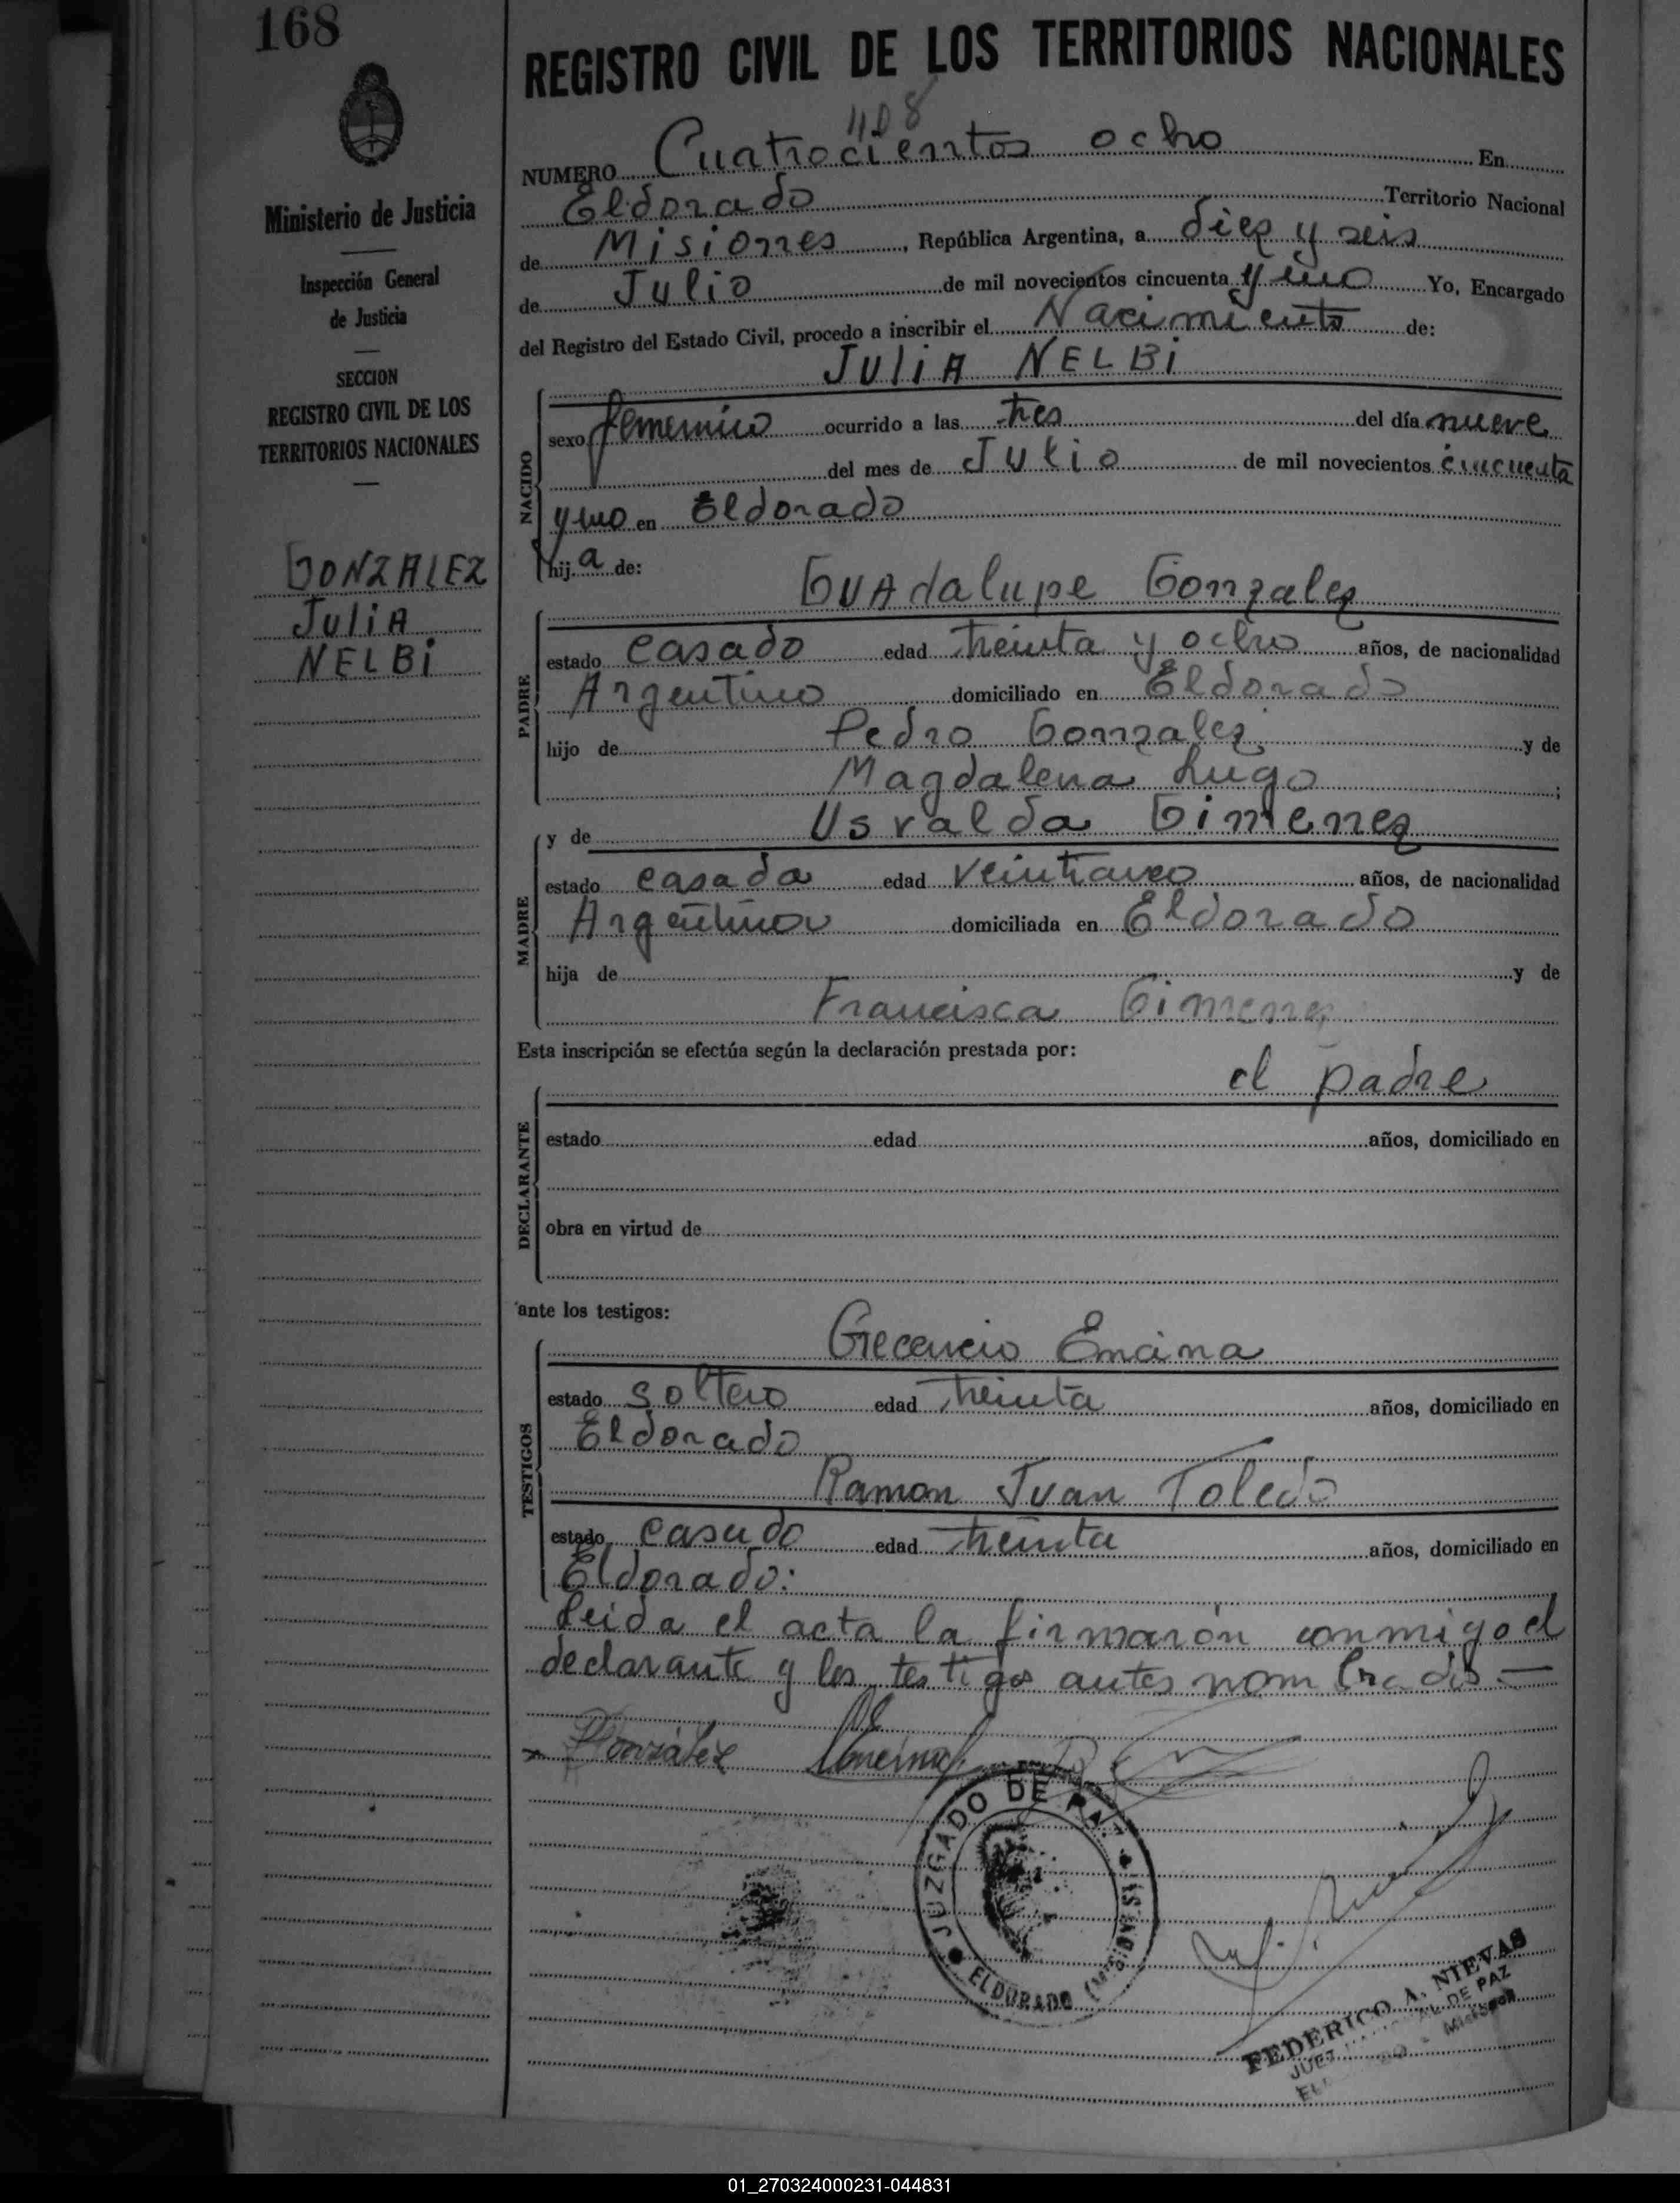 168
REGISTRO CIVIL DE LOS TERRITORIOS NACIONALES
Ministerio de Justicia
Inspección General
de Justicia
SECCION
REGISTRO CIVIL DE LOS
TERRITORIOS NACIONALES
GONZALEZ
JuliA
NELBi
408
NUMERO Cuatrocientos ocho En
Eldorado Territorio Nacional
de Misiones, República Argentina, a diez y seis
de Julio de mil novecientos cincuenta y uno Yo, Encargado
del Registro del Estado Civil, procedo a inscribir el Nacimiento de:
JUliA NELBi
NACIDO
sexo femenino ocurrido a las tres del día nueve
del mes de Julio de mil novecientos cincuenta
y uno en Eldorado
hija de:
GUAdalupe Gonzalez
PADRE
estado casado edad treinta y ocho años, de nacionalidad
Argentino domiciliado en Eldorado
hijo de Pedro Gonzalez y de
Magdalena Lugo;
y de Usvalda Gimenez
MADRE
estado casada edad años, de nacionalidad
Argentina domiciliada en Eldorado
hija de y de
Francisca Gimenez
Esta inscripción se efectúa según la declaración prestada por:
el padre
DECLARANTE
estado edad años, domiciliado en
obra en virtud de
ante los testigos:
Encina
TESTIGOS
estado soltero edad treinta años, domiciliado en
Eldorado
Ramon Juan Toledo
estado casado edad treinta años, domiciliado en
Eldorado:
Leida el acta la firmarón conmigo el
declarante y los testigos antes nombrados —
González
JUZGADO DE PAZ
ELDORADO (Misiones)
FEDERICO A. NIEVAS
JUEZ NACIONAL DE PAZ
ELDORADO - Misiones
01_270324000231-044831